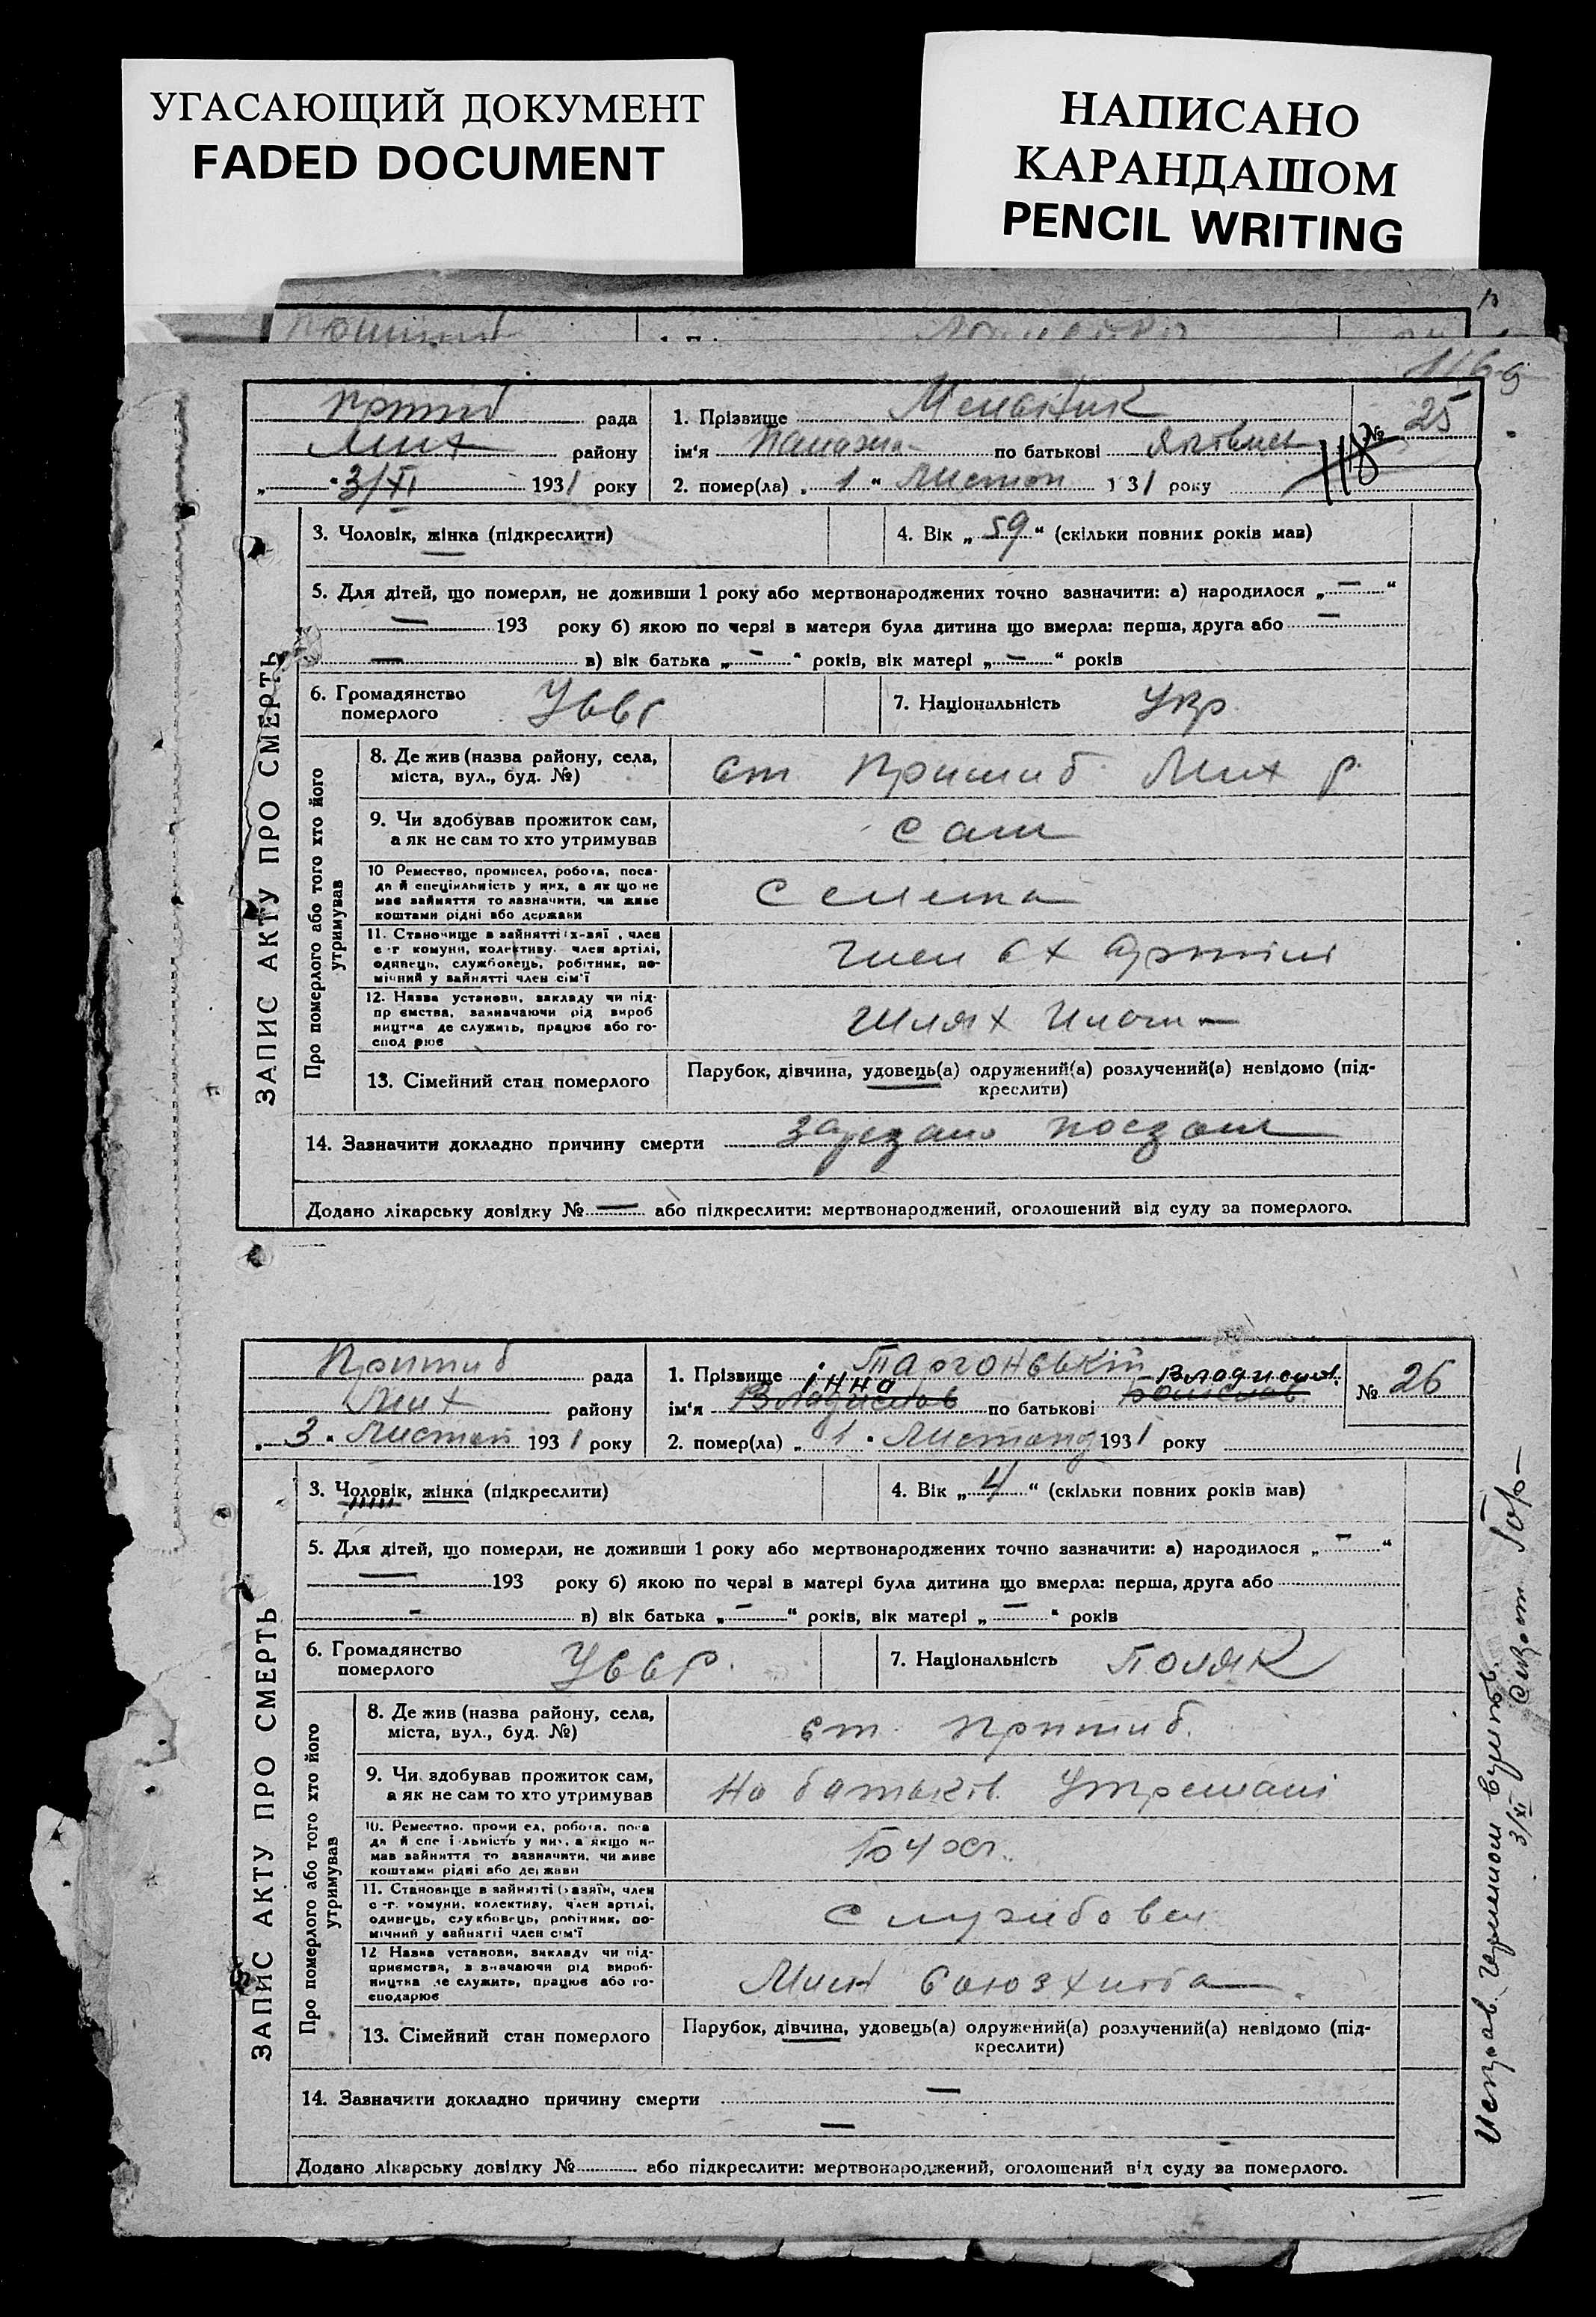 УГАСАЮЩИЙ ДОКУМЕНТ
FADED DOCUMENT
НАПИСАНО
КАРАНДАШОМ
PENCIL WRITING
ЗАПИС АКТУ ПРО СМЕРТЬ
Пришиб рада
Мих району
" " 3/XI 1931 року
1. Прізвище Мельник
ім'я по батькові
№ 25
118
2. помер(ла) „ 1 " Листоп 131 року
3. Чоловік, жінка (підкреслити)
4. Вік „ 59 " (скільки повних років мав)
5. Для дітей, що померли, не доживши 1 року або мертвонароджених точно зазначити: а) народилося „ — "
— 193 року б) якою по черзі в матери була дитина що вмерла: перша, друга або —
— в) вік батька „ - " років, вік матері „ - " років
6. Громадянство
померлого
УССР
7. Національність Укр
Про померлого або того хто його
утримував
8. Де жив (назва району, села,
міста, вул., буд. №)
ст Пришиб Мих р
9. Чи здобував прожиток сам,
а як не сам то хто утримував
Сам
10 Ремество, промисел, робота, поса-
да й спеціяльність у них, а як що не
має зайняття то зазначити, чи живе
коштами рідні або держави
11. Становище в зайнятті (х-зяї , член
с-г комуни, колективу, член артілі,
одинець, службовець, робітник, по-
мічний у зайнятті член сім'ї
член сх артілі
12. Назва установи, закладу чи під-
пр ємства, зазначаючи рід вироб
ництва де служить, працює або го-
спод рює
Шлях
13. Сімейний стан померлого
Парубок, дівчина, удовець(а) одружений(а) розлучений(а) невідомо (під-
креслити)
14. Зазначити докладно причину смерти зарезано поездом
Додано лікарську довідку № — або підкреслити: мертвонароджений, оголошений від суду за померлого.
ЗАПИС АКТУ ПРО СМЕРТЬ
Пришиб рада
Мих району
„ 3 " Листоп 1931 року
1. Прізвище Таргонський
Інна Владислав.
ім'я Владислав по батькові
№ 26
2. помер(ла) „ 1 " Листопад 1931 року
3. Чоловік, жінка (підкреслити)
4. Вік „ 4 " (скільки повних років мав)
5. Для дітей, що померли, не доживши 1 року або мертвонароджених точно зазначити: а) народилося „ - "
— 193 року б) якою по черзі в матері була дитина що вмерла: перша, друга або
- в) вік батька „ - " років, вік матері „ - " років
6. Громадянство
померлого
УССР.
7. Національність Поляк
Про померлого або того хто його
утримував
8. Де жив (назва району, села,
міста, вул., буд. №)
ст. Пришиб.
9. Чи здобував прожиток сам,
а як не сам то хто утримував
На батьков. Утремані
10. Ремество, проми ел, робота, поса
да й спе і льність у них, а якщо не
мав зайняття то зазначити, чи живе
коштами рідні або держави
11. Становище в зайнятті (хазяїн, член
с-г. комуни, колективу, член артілі,
одинець, службовець, робітник, по-
мічний у зайнятті член сім'ї
Службовец
12 Назва установи, закладу чи під-
приємства, з значаючи рід вироб-
ництва де служить, працює або го-
сподарює
Млин Союзхліба
13. Сімейний стан померлого
Парубок, дівчина, удовець(а) одружений(а) розлучений(а) невідомо (під-
креслити)
14. Зазначити докладно причину смерти —
—
Додано лікарську довідку № або підкреслити: мертвонароджений, оголошений від суду за померлого.
3/XI